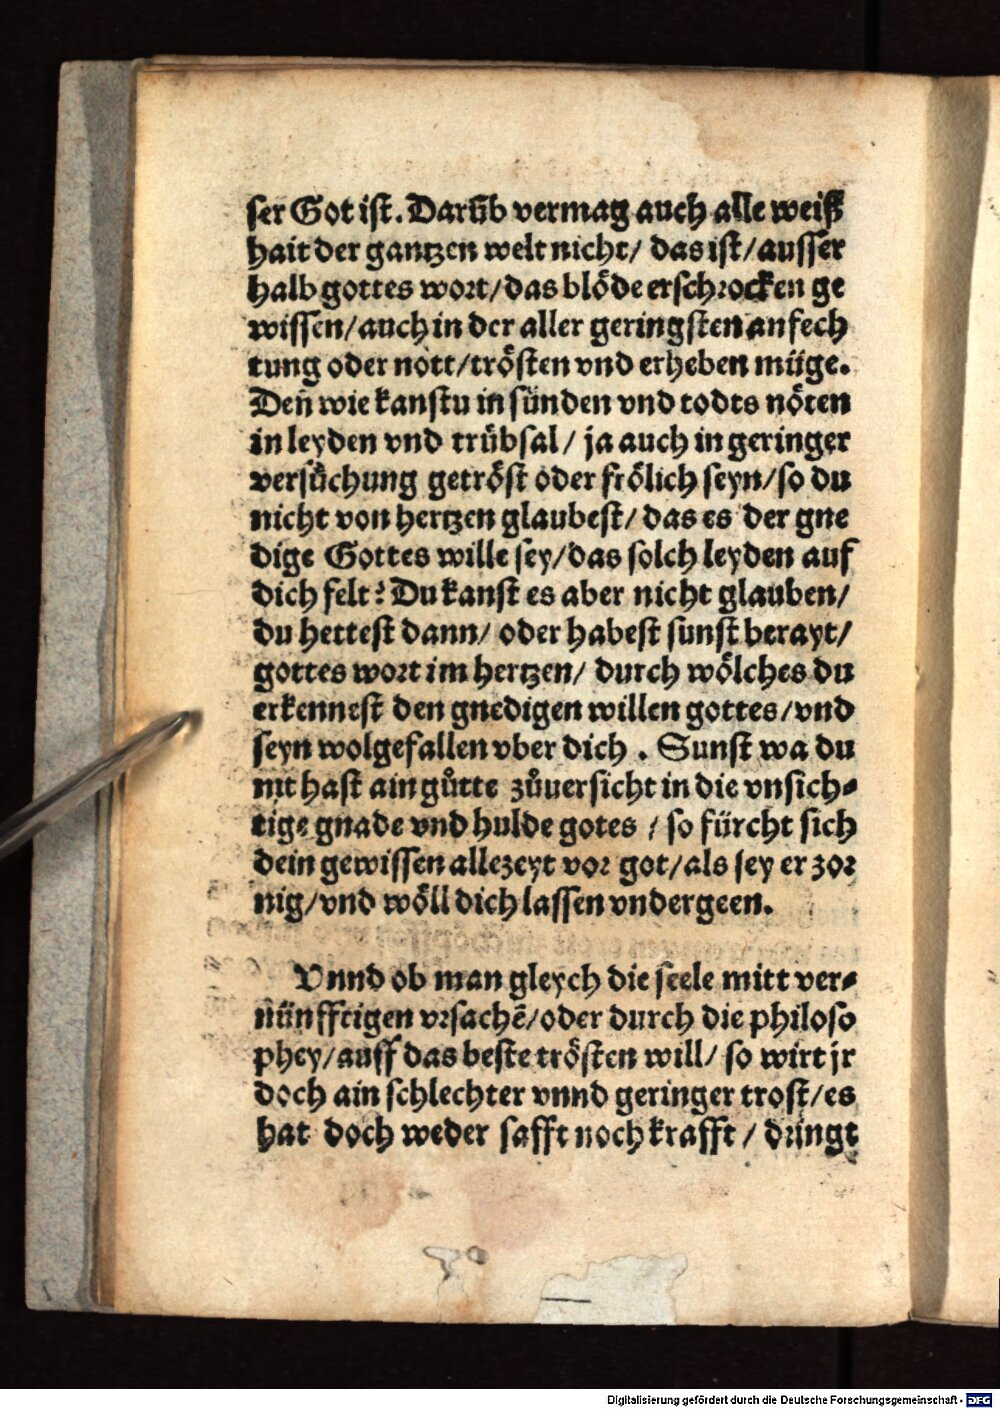 ser Got ist. Darūb vermag auch alle weiß
hait der gantzen welt nicht/ das ist/ ausser
halb gottes wort/das blöde erschrocken ge
wissen/auch in der aller geringsten anfech
tung oder nott/trösten vnd erheben müge.
Deñ wie kanstu in sünden vnd todts nöten
in leyden vnd trübsal/ ja auch in geringer
versůchung getröst oder frölich seyn/so du
nicht von hertzen glaubest/ das es der gne
dige Gottes wille sey/das solch leyden auf
dich felt? Du kanst es aber nicht glauben/
du hettest dann/ oder habest sunst berayt/
gottes wort im hertzen/ durch wölches du
erkennest den gnedigen willen gottes/vnd
seyn wolgefallen vber dich . Sunst wa du
nit hast ain gůtte zůuersicht in die vnsich-
tige gnade vnd hulde gotes / so fürcht sich
dein gewissen allezeyt vor got/als sey er zor
nig/vnd wöll dich lassen vndergeen.
Vnnd ob man gleych die seele mitt ver-
nünfftigen vrsachē/oder durch die philoso
phey/auff das beste trösten will/ so wirt jr
doch ain schlechter vnnd geringer trost/es
hat doch weder safft noch krafft / düngt
Digitalisierung gefördert durch die Deutsche Forschungsgemeinschaft - DFG